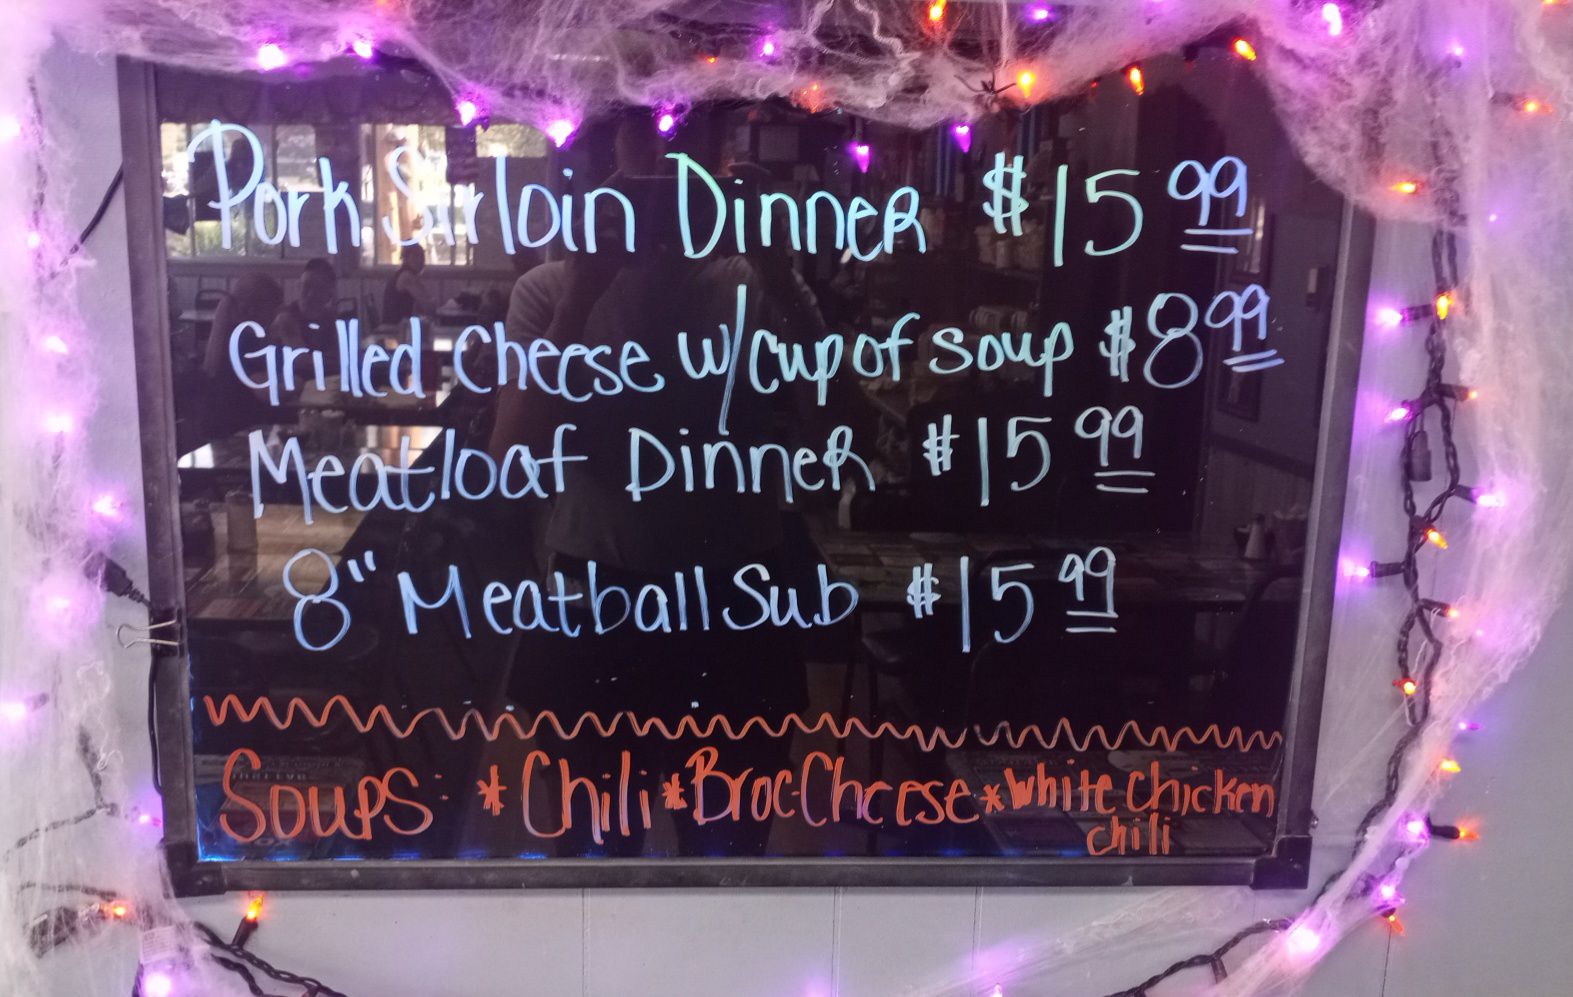 Pork Sirloin Dinner $15 99
Grilled Cheese w/cup of soup $8 99
Meatloaf Dinner $15 99
8" Meatball Sub $15 99
Soups: *Chili *Broc-Cheese *white chicken
chili